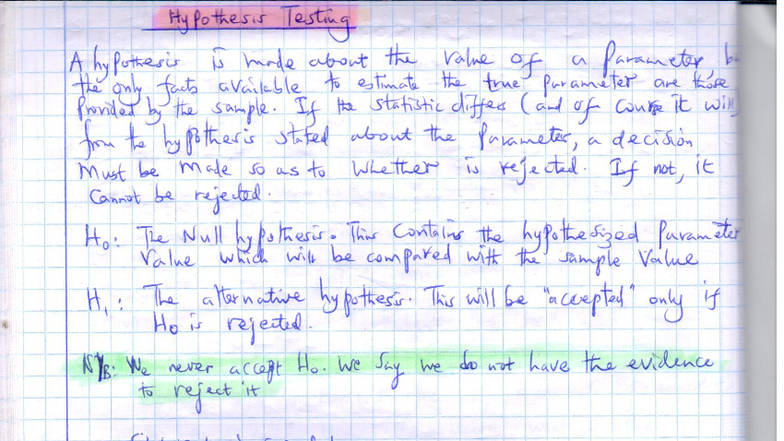 Hypothesis Testing
A hypothesis is made about the value of a Parameter b
the only facts available to estimate the true parameter are those
Provided by the sample. If the statistic differs (and of course it will
from the hypothesis stated about the Parameter, a decision
Must be made so as to whether is rejected. If not, it
Cannot be rejected.
H₀: The Null hypothesis. This Contains the hypothesized Parameter
Value which will be compared with the sample Value
H₁: The alternative hypothesis. This will be "accepted" only if
H₀ is rejected.
N/B: We never accept H₀. We Say we do not have the evidence
to reject it